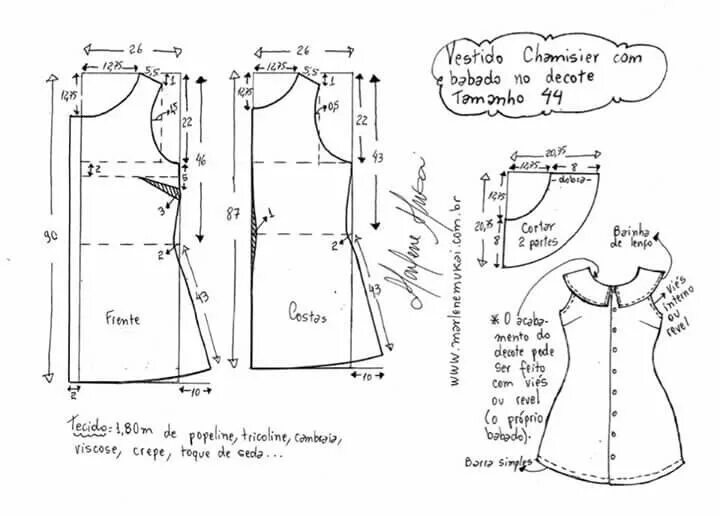 Vestido Chamisier com
babado no decote
Tamanho 44
26
12,75
5,5
1
12,75
1,5
22
46
2
5
3
90
2
43
Frente
2
10
26
12,75
5,5
1
12,75
0,5
22
43
87
1
2
43
Costas
10
Marlene Mukai
www.marlenemukai.com.br
20,75
12,75
8
-dobra-
12,75
20,75
8
Cortar
2 partes
Bainha
de lenço
viés
interno
ou
revel
* O acaba-
mento do
decote pode
ser feito
com viés
ou revel
(o próprio
babado).
Barra simples
Tecido=1,80m de popeline, tricoline, cambraia,
viscose, crepe, toque de seda...